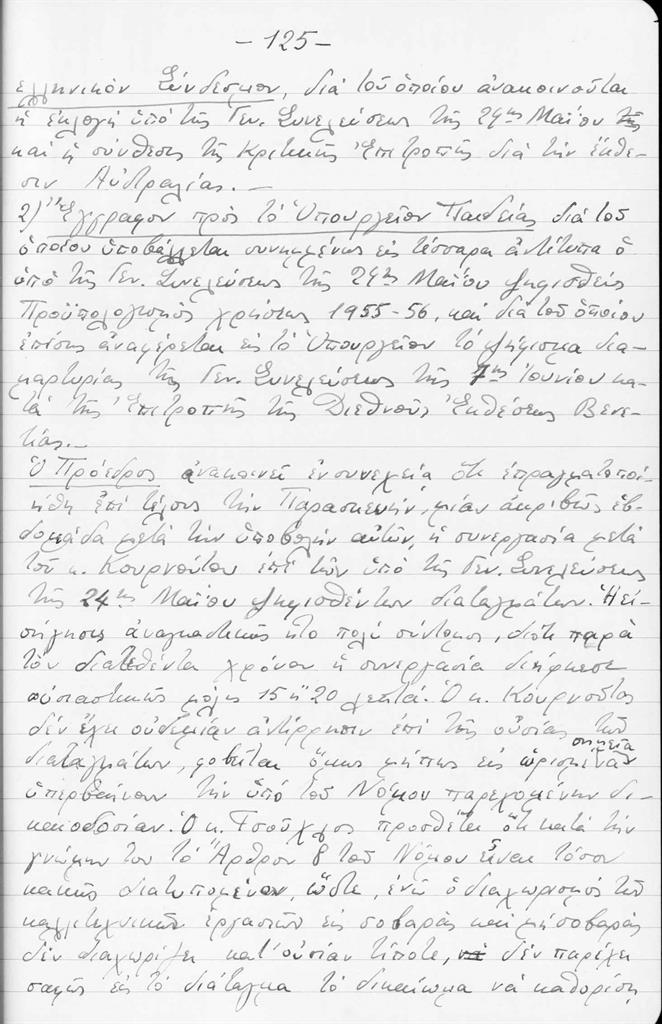 - 125 -
ελληνικὸν Σύνδεσμον, διὰ τοῦ ὁποίου ἀνακοινοῦται
ἡ ἐκλογὴ ὑπὸ τῆς Γεν. Συνελεύσεως τῆς 24ης Μαΐου
καὶ ἡ σύνθεσις τῆς Κριτικῆς Ἐπιτροπῆς διὰ τὴν ἔκθε-
σιν Αὐστραλίας.—
2) Ἔγγραφον πρὸς τὸ Ὑπουργεῖον Παιδείας διὰ τοῦ
ὁποίου ὑποβάλλεται συνημμένως εἰς τέσσαρα ἀντίτυπα ὁ
ὑπὸ τῆς Γεν. Συνελεύσεως τῆς 24ης Μαΐου ψηφισθεὶς
Προϋπολογισμὸς χρήσεως 1955-56, καὶ διὰ τοῦ ὁποίου
ἐπίσης ἀναφέρεται εἰς τὸ Ὑπουργεῖον τὸ ψήφισμα δια-
μαρτυρίας τῆς Γεν. Συνελεύσεως τῆς 7ης Ἰουνίου κα-
τὰ τῆς Ἐπιτροπῆς τῆς Διεθνοῦς Ἐκθέσεως Βενε-
τίας.—
Ὁ Πρόεδρος ἀνακοινεῖ ἐν συνεχείᾳ ὅτι ἐπραγματοποι-
ήθη ἐπὶ τέλους τὴν Παρασκευήν, μίαν ἀκριβῶς ἑβ-
δομάδα μετὰ τὴν ὑποβολὴν αὐτῶν, ἡ συνεργασία μετὰ
τοῦ κ. Κουρνούτου ἐπὶ τῶν ὑπὸ τῆς Γεν. Συνελεύσεως
τῆς 24ης Μαΐου ψηφισθέντων διαταγμάτων. Ἡ εἰ-
σήγησις ἀναγκαστικῶς ἦτο πολὺ σύντομος, διότι παρὰ
τὸν διατεθέντα χρόνον ἡ συνεργασία διήρκεσε
οὐσιαστικῶς μόλις 15 ἢ 20 λεπτά. Ὁ κ. Κουρνοῦτος
δὲν ἔχει οὐδεμίαν ἀντίρρησιν ἐπὶ τῆς οὐσίας τῶν
διαταγμάτων, φοβεῖται ὅμως μήπως εἰς ὡρισμένα σημεῖα
ὑπερβαίνουν τὴν ὑπὸ τοῦ Νόμου παρεχομένην δι-
καιοδοσίαν. Ὁ κ. Τσοῦχλος προσθέτει ὅτι κατὰ τὴν
γνώμην του τὸ Ἄρθρον 8 τοῦ Νόμου εἶναι τόσον
κακῶς διατυπωμένον, ὥστε, ἐνῶ ὁ διαχωρισμὸς τῶν
καλλιτεχνικῶν ἐργασιῶν εἰς σοβαρὰς καὶ μὴ σοβαρὰς
δὲν διαχωρίζει κατ' οὐσίαν τίποτε, δὲν παρέχει
σαφῶς εἰς τὸ διάταγμα τὸ δικαίωμα νὰ καθορίσῃ